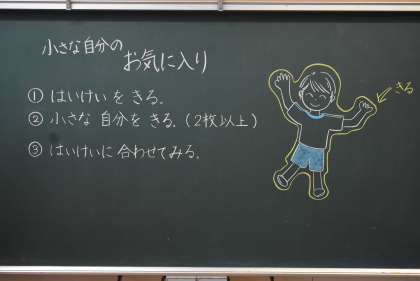 小さな自分の
お気に入り
① はいけいを きる。
② 小さな 自分を きる。(2枚以上)
③ はいけいに 合わせてみる。
きる